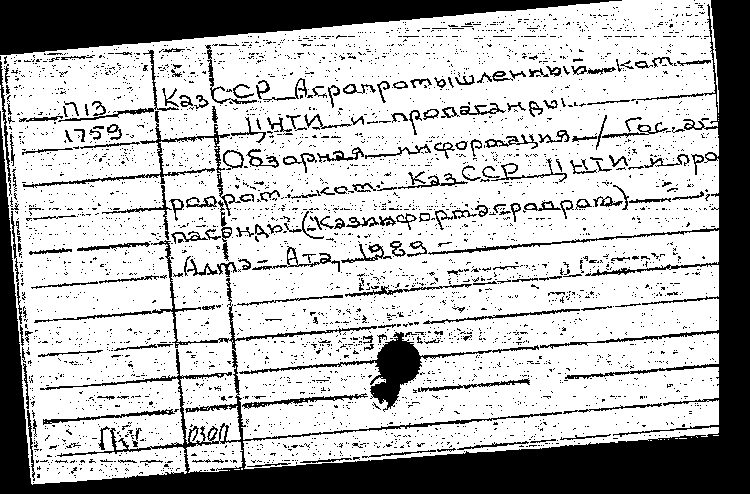 П13
1759
КазССР Агропромышленный ком.
ЦНТИ и пропаганды.
Обзорная информация. / Гос. аг-
ропром. ком. КазССР ЦНТИ и про
паганды (Казинформагропром)
Алма-Ата, 1989 -